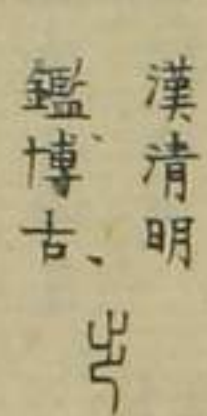 漢清明
鑑博古、